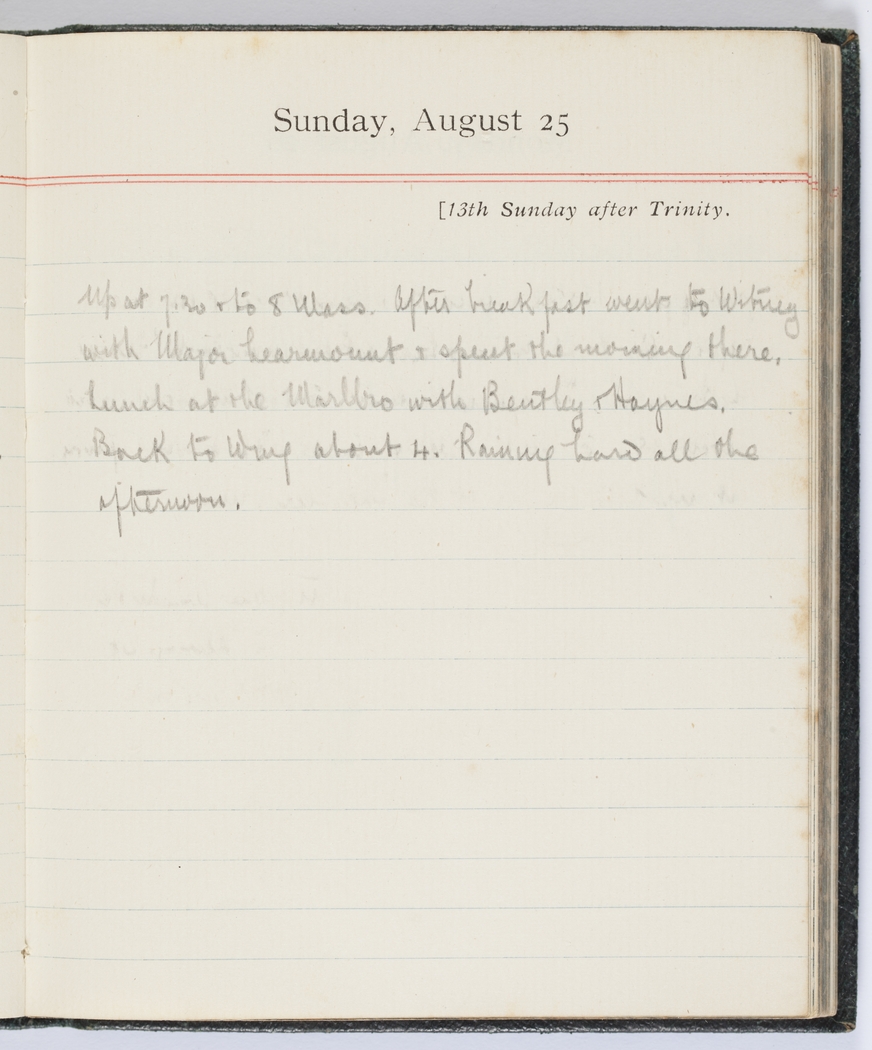 Sunday, August 25
[13th Sunday after Trinity.
Up at 7.30 & to 8 Mass. After breakfast went to Witney
with Major Learmount & spent the morning there.
Lunch at the Marlbro with Bentley & Haynes.
Back to Wing about 4. Raining hard all the
afternoon.